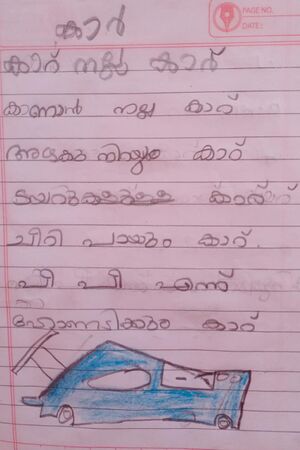 PAGE NO.
DATE:
കാർ
കാറ് നല്ല കാറ്
കാണാൻ നല്ല കാറ്
അഴകു നിറയും കാറ്
ടയറുകളുള്ള കാറ്
ചീറി പായും കാറ്.
പീ പീ എന്ന്
ഹോണടിക്കും കാറ്